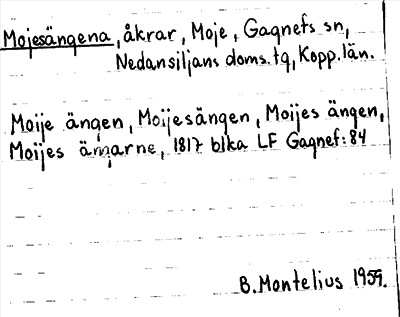 Mojesängena, åkrar, Moje, Gagnefs sn,
Nedansiljans doms. tg, Kopp. län.
Moije ängen, Moijesängen, Moijes ängen,
Moijes ängarne, 1817 blka LF Gagnef: 84
B. Montelius 1959.